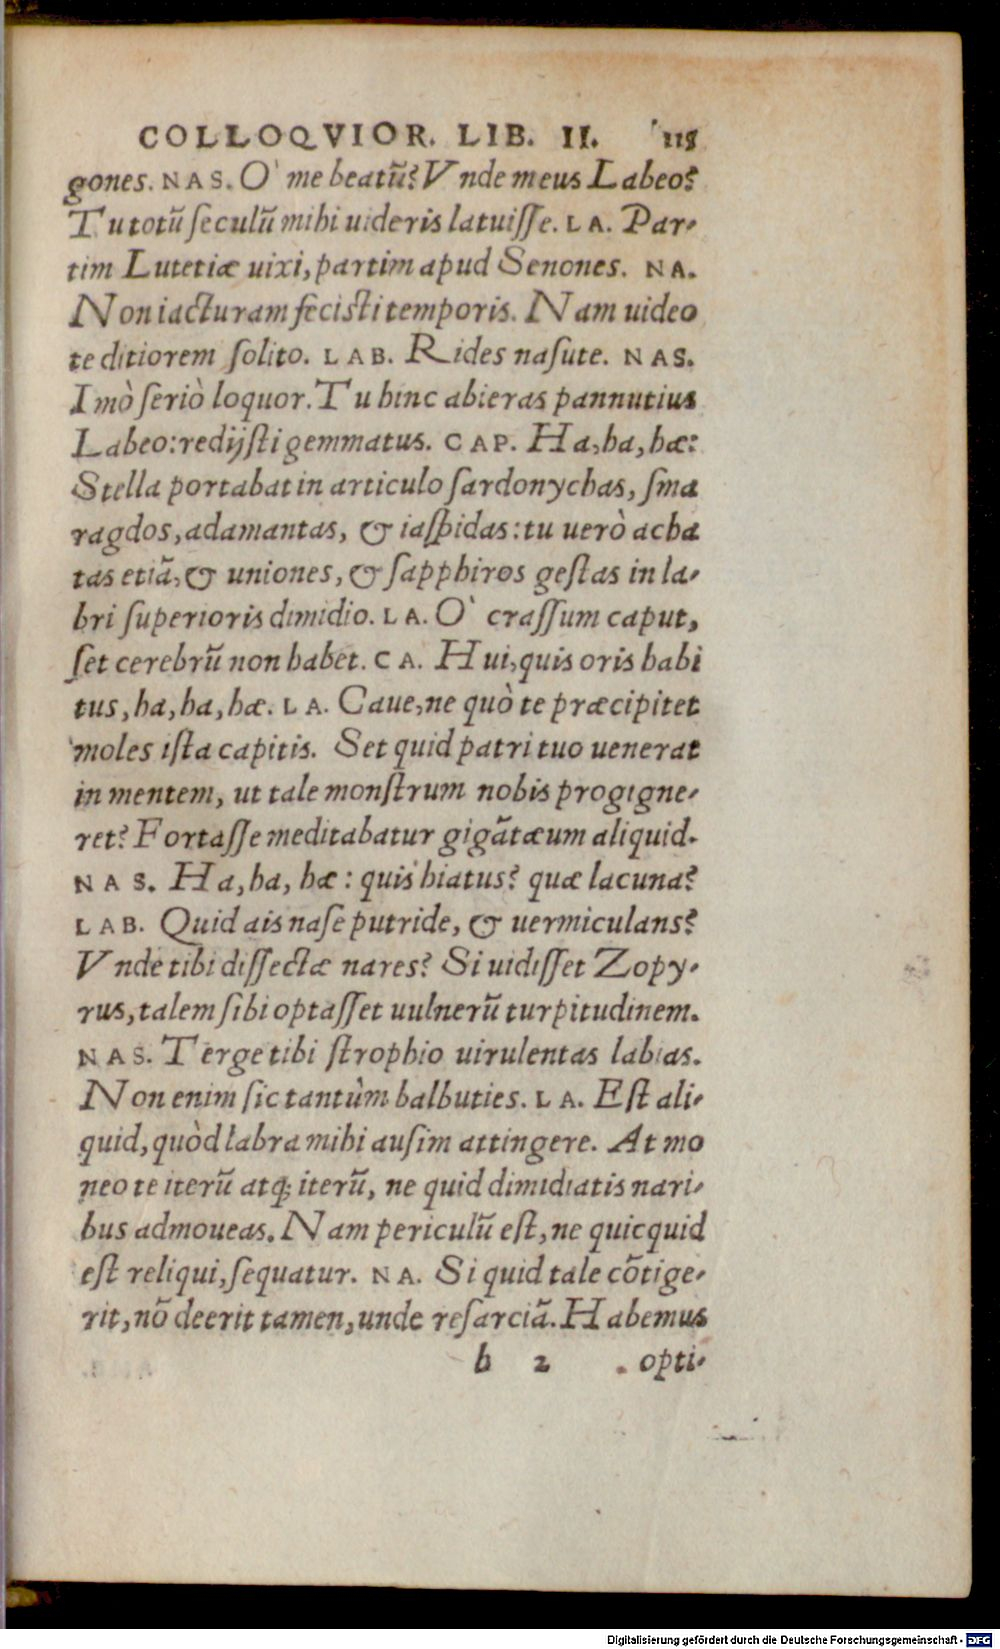 COLLOQVIOR. LIB. II. 118
gones. NAS. O' me beatũ? Vnde meus Labeo?
Tu totũ seculũ mihi uideris latuisse. LA. Par-
tim Lutetiæ uixi, partim apud Senones. NA.
Non iacturam fecisti temporis. Nam uideo
te ditiorem solito. LAB. Rides nasute. NAS.
Imò seriò loquor. Tu hinc abieras pannutius
Labeo: redijsti gemmatus. CAP. Ha, ha, hæ:
Stella portabat in articulo sardonychas, sma
ragdos, adamantas, & iaspidas: tu uerò acha
tas etiã, & uniones, & sapphiros gestas in la-
bri superioris dimidio. LA. O' crassum caput,
set cerebrũ non habet. CA. Hui, quis oris habi
tus, ha, ha, hæ. LA. Caue, ne quò te præcipitet
moles ista capitis. Set quid patri tuo uenerat
in mentem, ut tale monstrum nobis progigne-
ret? Fortasse meditabatur gigãtæum aliquid.
NAS. Ha, ha, hæ: quis hiatus? quæ lacuna?
LAB. Quid ais nase putride, & uermiculans?
Vnde tibi dissectæ nares? Si uidisset Zopy-
rus, talem sibi optasset uulnerũ turpitudinem.
NAS. Terge tibi strophio uirulentas labias.
Non enim sic tantùm balbuties. LA. Est ali-
quid, quòd labra mihi ausim attingere. At mo
neo te iterũ atq; iterũ, ne quid dimidiatis nari-
bus admoueas. Nam periculũ est, ne quicquid
est reliqui, sequatur. NA. Si quid tale cõtige-
rit, nõ deerit tamen, unde resarciã. Habemus
b 2 opti-
Digitalisierung gefördert durch die Deutsche Forschungsgemeinschaft - DFG